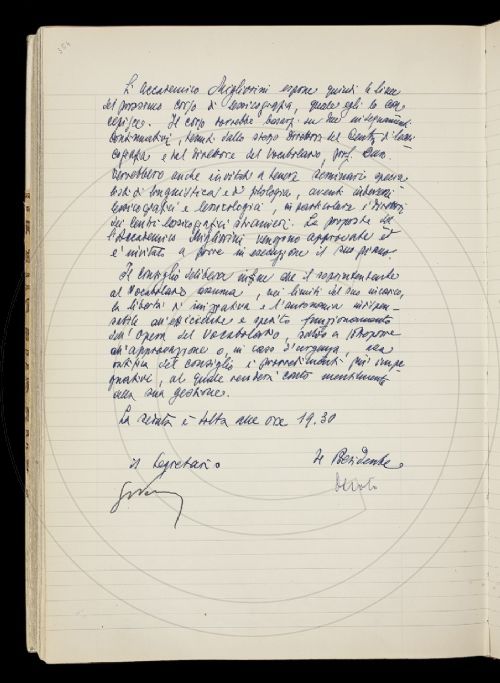 L'accademico Migliorini espone quindi le linee
del prossimo corso di lessicografia, quale egli lo con-
cepisce. Il corso dovrebbe basarsi su due insegnamenti
continuativi, tenuti dallo stesso direttore del Centro di lessi-
cografia e dal direttore del Vocabolario, prof. Duro.
Dovrebbero anche invitati a tenere seminari specia-
listi di linguistica e di filologia, aventi interessi
lessicografici e lessicologici, in particolare i direttori
dei centri lessicografici stranieri. Le proposte del-
l'accademico Migliorini vengono approvate ed
è invitato a porre in esecuzione il suo piano.
Il Consiglio delibera infine che il soprintendente
al Vocabolario assuma, nei limiti del suo incarico,
la libertà di iniziativa e l'autonomia indispen-
sabile all'efficiente e spedito funzionamento
dell'Opera del Vocabolario salvo a sottoporre
all'approvazione o, in caso d'urgenza, alla
ratifica del consiglio i provvedimenti più impe-
gnativi, al quale renderà conto mensilmente
della sua gestione.
La seduta è tolta alle ore 19.30
Il Segretario Il Presidente
Devoto